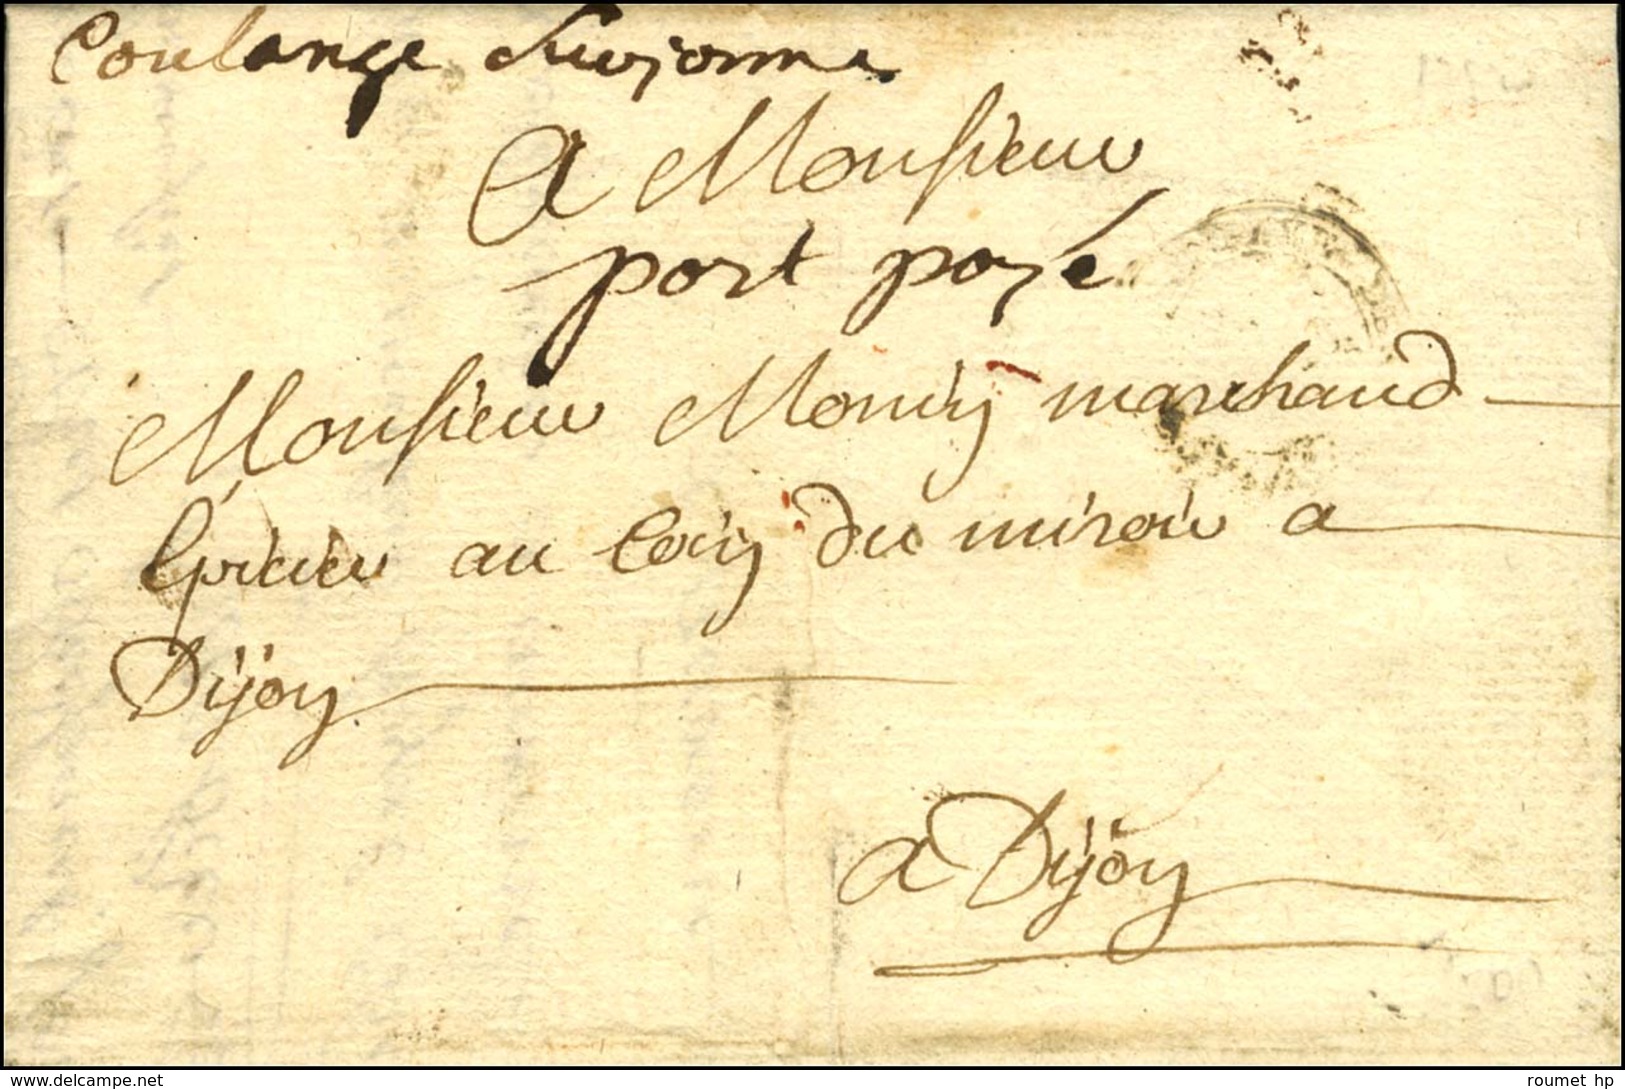 Coulange Suryonne
A Monsieur
port payé
Monsieur marchand
épicier au Coin du miroir a
Dijon
a Dijon
www.delcampe.net
roumet hp